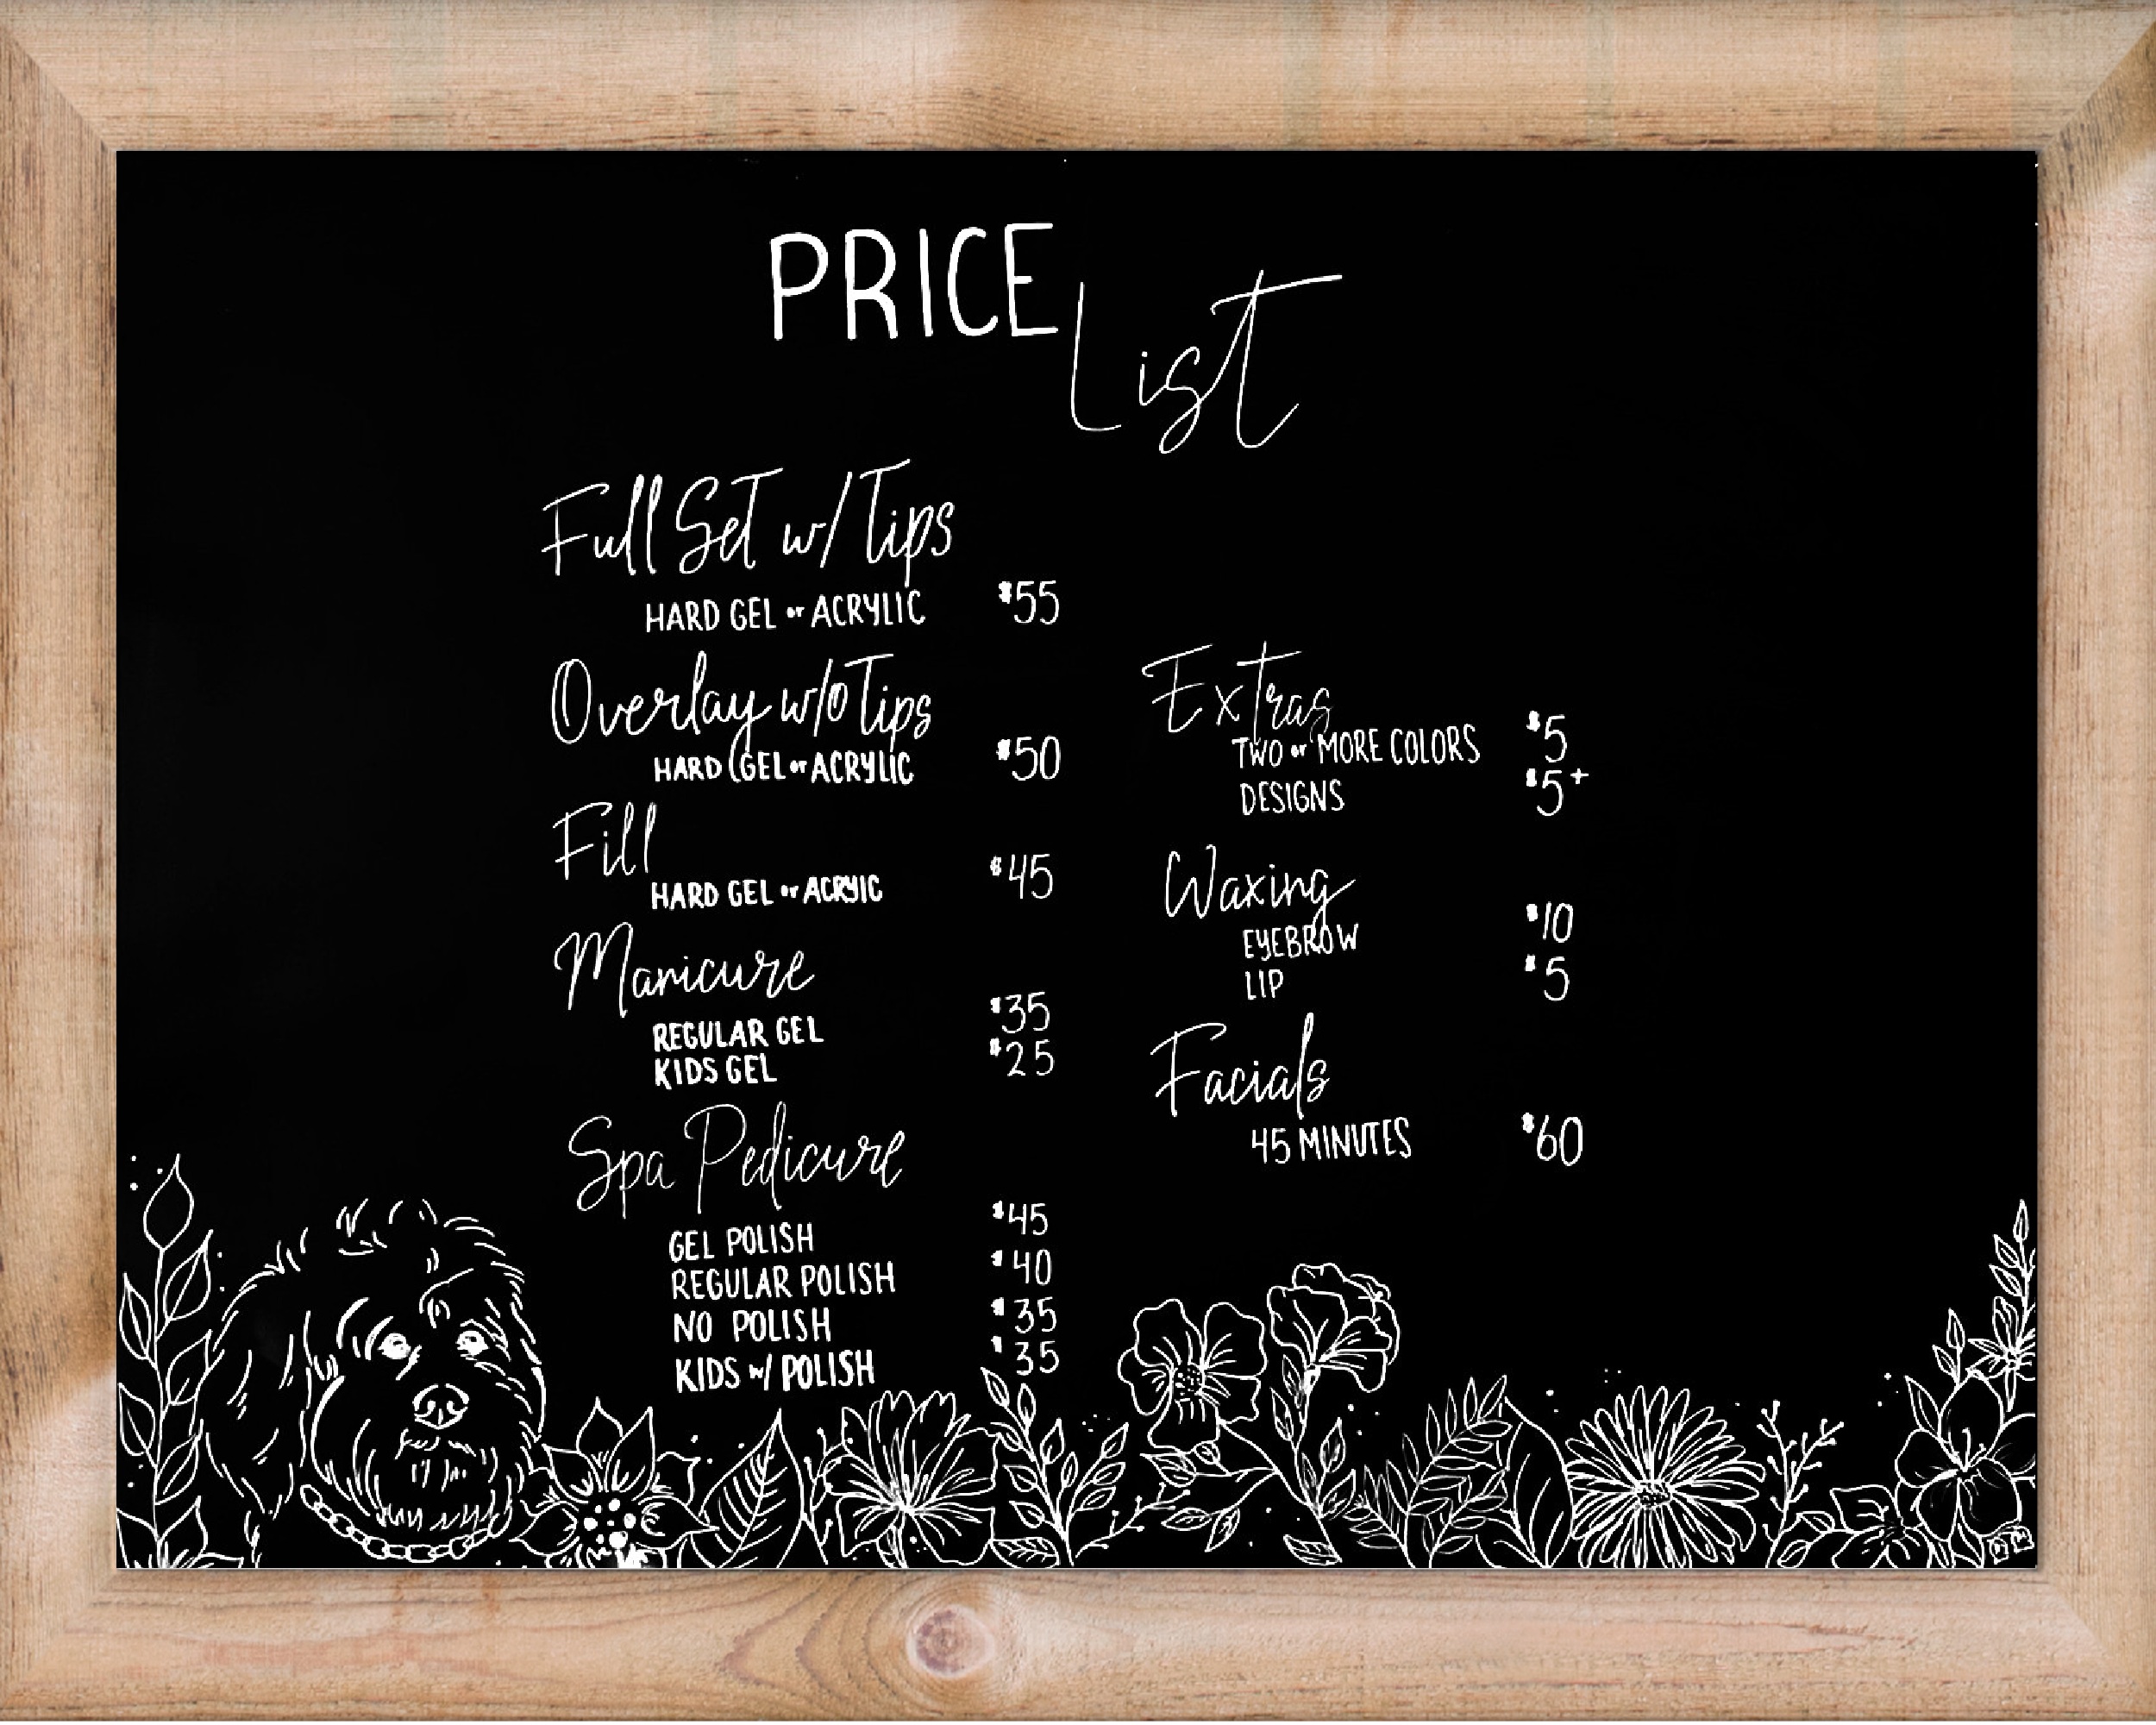 PRICE
List
Full Set w/ Tips
HARD GEL or ACRYLIC $55
Overlay w/o Tips
HARD GEL or ACRYLIC $50
Fill
HARD GEL or ACRYIC $45
Manicure
REGULAR GEL $35
KIDS GEL $25
Spa Pedicure
GEL POLISH $45
REGULAR POLISH $40
NO POLISH $35
KIDS w/ POLISH $35
Extras
TWO or MORE COLORS $5
DESIGNS $5+
Waxing
EYEBROW $10
LIP $5
Facials
45 MINUTES $60